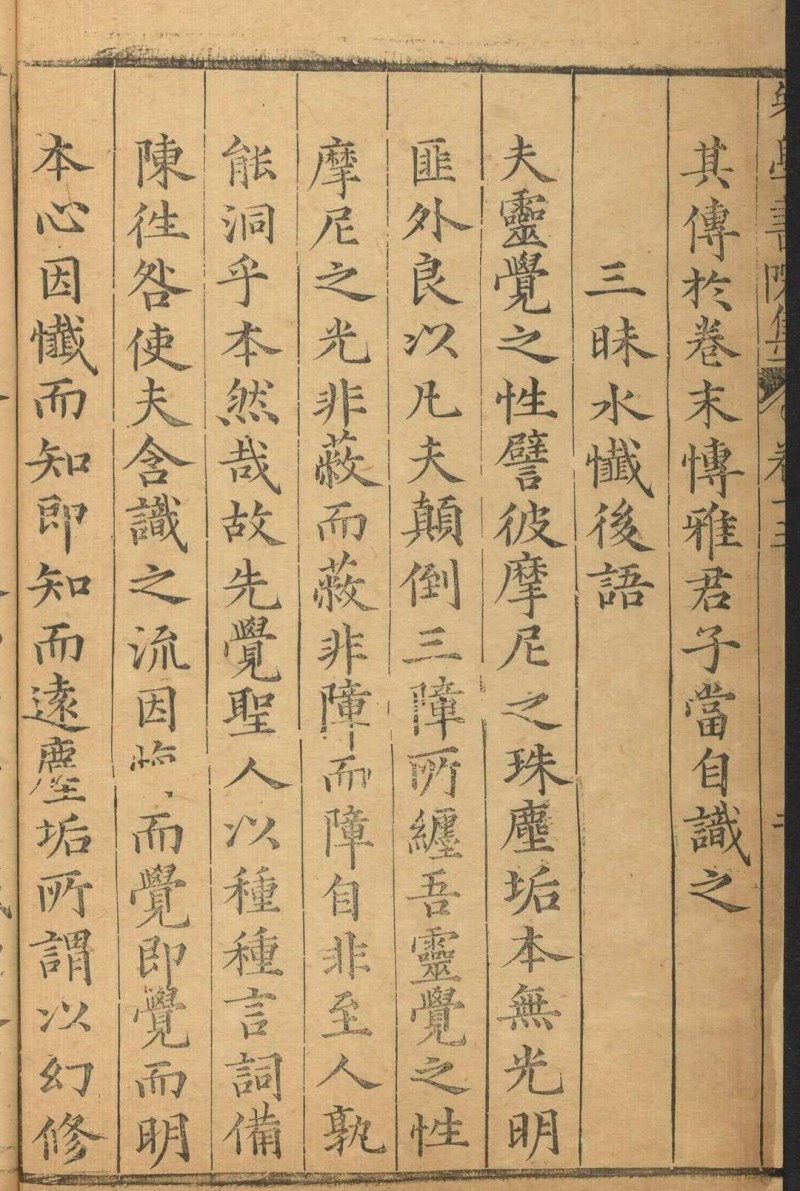 其傳於卷末慱雅君子當自識之
三昧水懺後語
夫靈覺之性譬彼摩尼之珠塵垢本無光明
匪外良以凡夫顛倒三障所纏吾靈覺之性
摩尼之光非蔽而蔽非障而障自非至人孰
能洞乎本然哉故先覺聖人以種種言詞備
陳徃咎使夫含識之流因而覺即覺而明
本心因懺而知即知而遠塵垢所謂以幻修